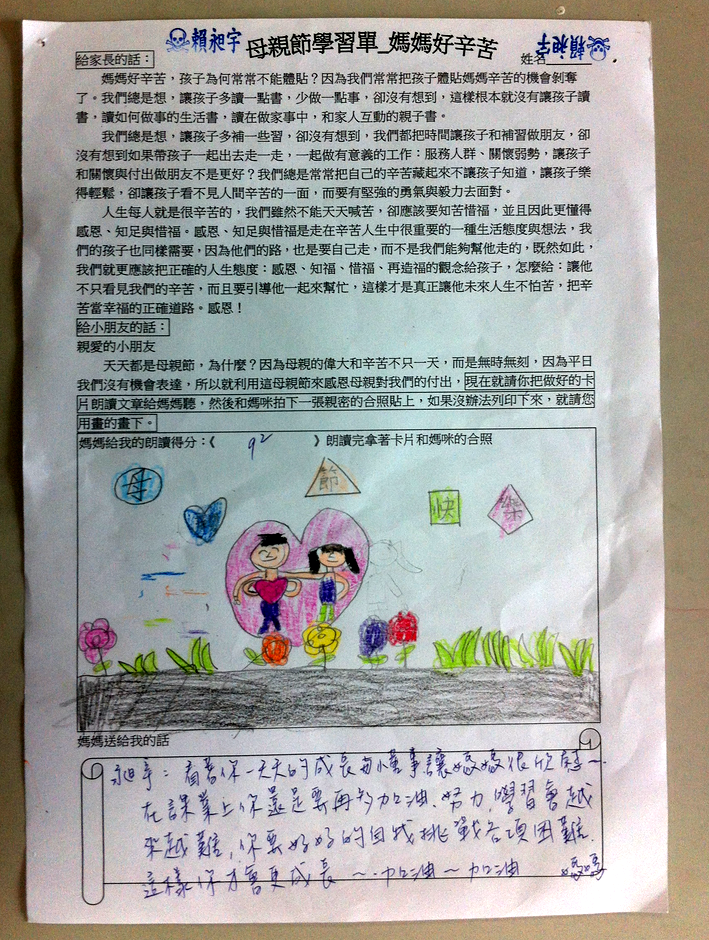 賴昶宇 母親節學習單_媽媽好辛苦 賴昶宇
給家長的話： 姓名
媽媽好辛苦，孩子為何常常不能體貼？因為我們常常把孩子體貼媽媽辛苦的機會剝奪
了。我們總是想，讓孩子多讀一點書，少做一點事，卻沒有想到，這樣根本就沒有讓孩子讀
書，讀如何做事的生活書，讀在做家事中，和家人互動的親子書。
我們總是想，讓孩子多補一些習，卻沒有想到，我們都把時間讓孩子和補習做朋友，卻
沒有想到如果帶孩子一起出去走一走，一起做有意義的工作：服務人群、關懷弱勢，讓孩子
和關懷與付出做朋友不是更好？我們總是常常把自己的辛苦藏起來不讓孩子知道，讓孩子樂
得輕鬆，卻讓孩子看不見人間辛苦的一面，而要有堅強的勇氣與毅力去面對。
人生每人就是很辛苦的，我們雖然不能天天喊苦，卻應該要知苦惜福，並且因此更懂得
感恩、知足與惜福。感恩、知足與惜福是走在辛苦人生中很重要的一種生活態度與想法，我
們的孩子也同樣需要，因為他們的路，也是要自己走，而不是我們能夠幫他走的，既然如此，
我們就更應該把正確的人生態度：感恩、知福、惜福、再造福的觀念給孩子，怎麼給：讓他
不只看見我們的辛苦，而且要引導他一起來幫忙，這樣才是真正讓他未來人生不怕苦，把辛
苦當幸福的正確道路。感恩！
給小朋友的話：
親愛的小朋友
天天都是母親節，為什麼？因為母親的偉大和辛苦不只一天，而是無時無刻，因為平日
我們沒有機會表達，所以就利用這母親節來感恩母親對我們的付出，現在就請你把做好的卡
片朗讀文章給媽媽聽，然後和媽咪拍下一張親密的合照貼上，如果沒辦法列印下來，就請您
用畫的畫下。
媽媽給我的朗讀得分：《 92 》朗讀完拿著卡片和媽咪的合照
母 親 節 快 樂
媽媽送給我的話
昶宇：看著你一天天的成長每件事讓媽媽很欣慰～
在課業上你還是要再多加油、努力，學習會越
來越難，你要好好的自我挑戰各項困難.
這樣你才會更成長 ～加油～加油 媽媽